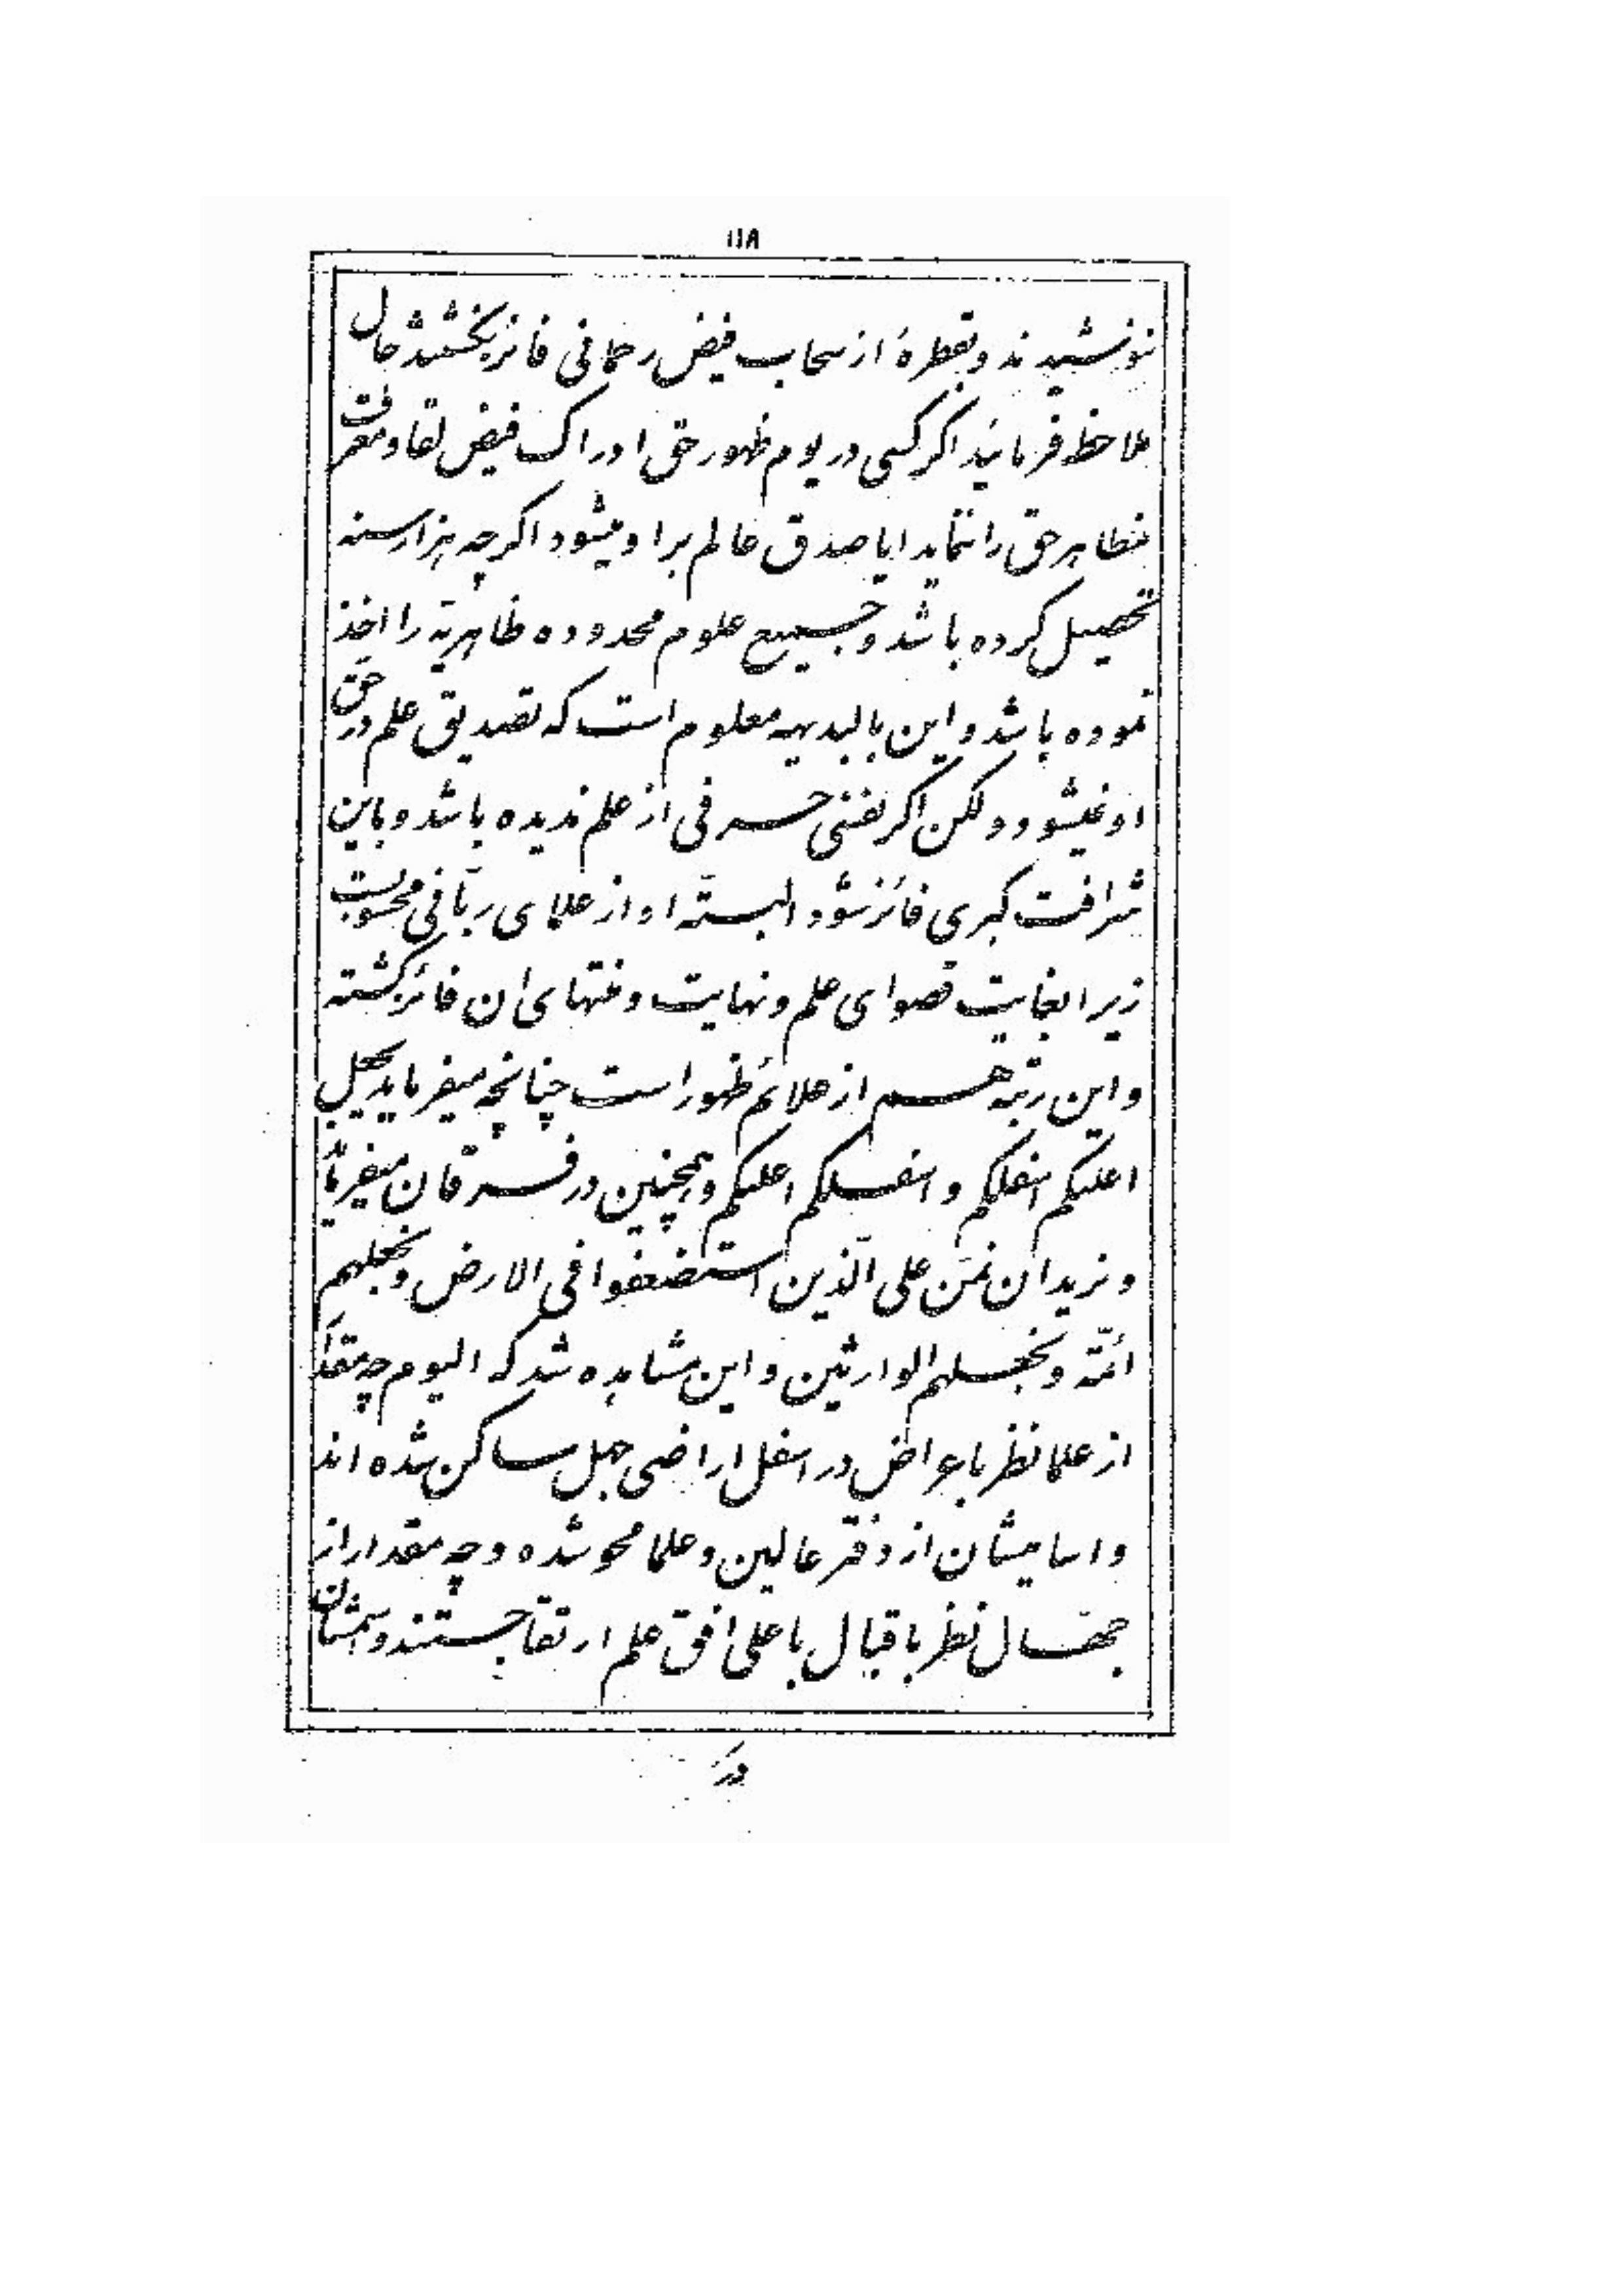 ۱۱۸
ننوشیدند و بقطرهٔ از سحاب فیض رحمانی فائز نگشتند حال
ملاحظه فرمائید اگر کسی در یوم ظهور حق ادراک فیض لقا و معرفت
مظاهر حق را ننماید ایا صدق عالم بر او میشود اگرچه هزار سنه
تحصیل کرده باشد و جمیع علوم محدوده ظاهریّه را اخذ
نموده باشد و این بالبدیهه معلوم است که تصدیق علم در حقّ
او نمیشود ولکن اگر نفسی حرفی از علم ندیده باشد و باین
شرافت کبری فائز شود البتّه او از علمای ربّانی محسوبست
زیرا بغایت قصوای علم و نهایت و منتهای ان فائز گشته
و این رتبه هم از علائم ظهور است چنانچه میفرماید یجعل
اعلیکم اسفلکم و اسفلکم اعلیکم و همچنین در فرقان میفرماید
و نرید ان نمنّ علی الّذین استضعفوا فی الارض و نجعلهم
ائمّة و نجعلهم الوارثین و این مشاهده شد که الیوم چه مقدار
از علما نظر باعراض در اسفل اراضی جهل ساکن شده اند
و اسامیشان از دفتر عالین و علما محو شده و چه مقدار از
جهّال نظر باقبال باعلی افق علم ارتقا جستند و اسمشان
در